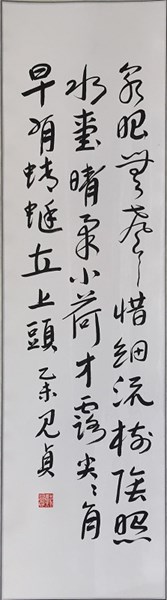 泉眼無聲惜細流樹陰照
水愛晴柔小荷才露尖々角
早有蜻蜓立上頭 乙未 見貞